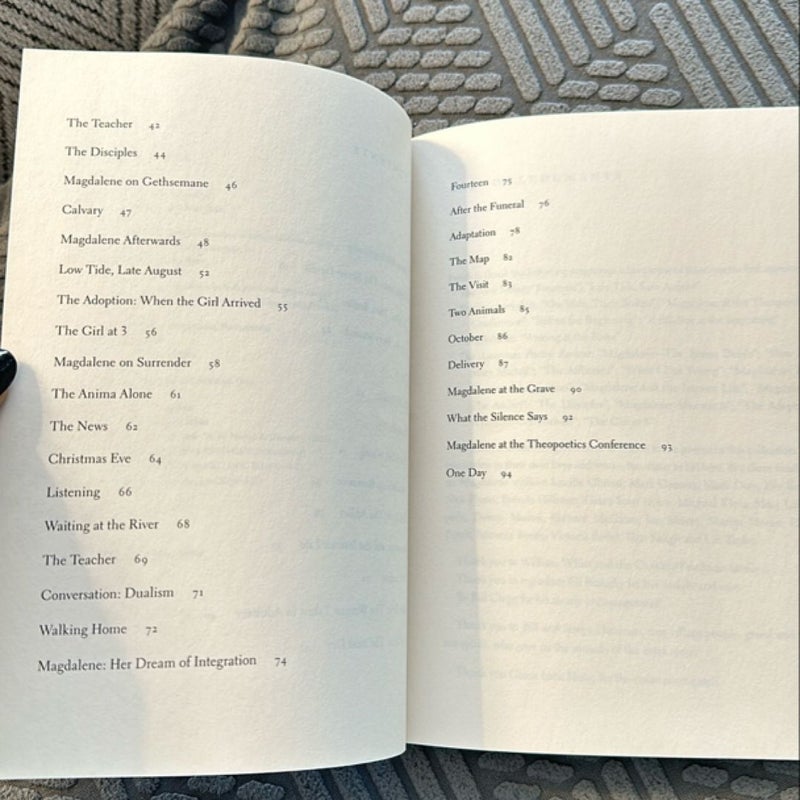 The Teacher 42
The Disciples 44
Magdalene on Gethsemane 46
Calvary 47
Magdalene Afterwards 48
Low Tide, Late August 52
The Adoption: When the Girl Arrived 55
The Girl at 3 56
Magdalene on Surrender 58
The Anima Alone 61
The News 62
Christmas Eve 64
Listening 66
Waiting at the River 68
The Teacher 69
Conversation: Dualism 71
Walking Home 72
Magdalene: Her Dream of Integration 74
Fourteen 75
After the Funeral 76
Adaptation 78
The Map 82
The Visit 83
Two Animals 85
October 86
Delivery 87
Magdalene at the Grave 90
What the Silence Says 92
Magdalene at the Theopoetics Conference 93
One Day 94